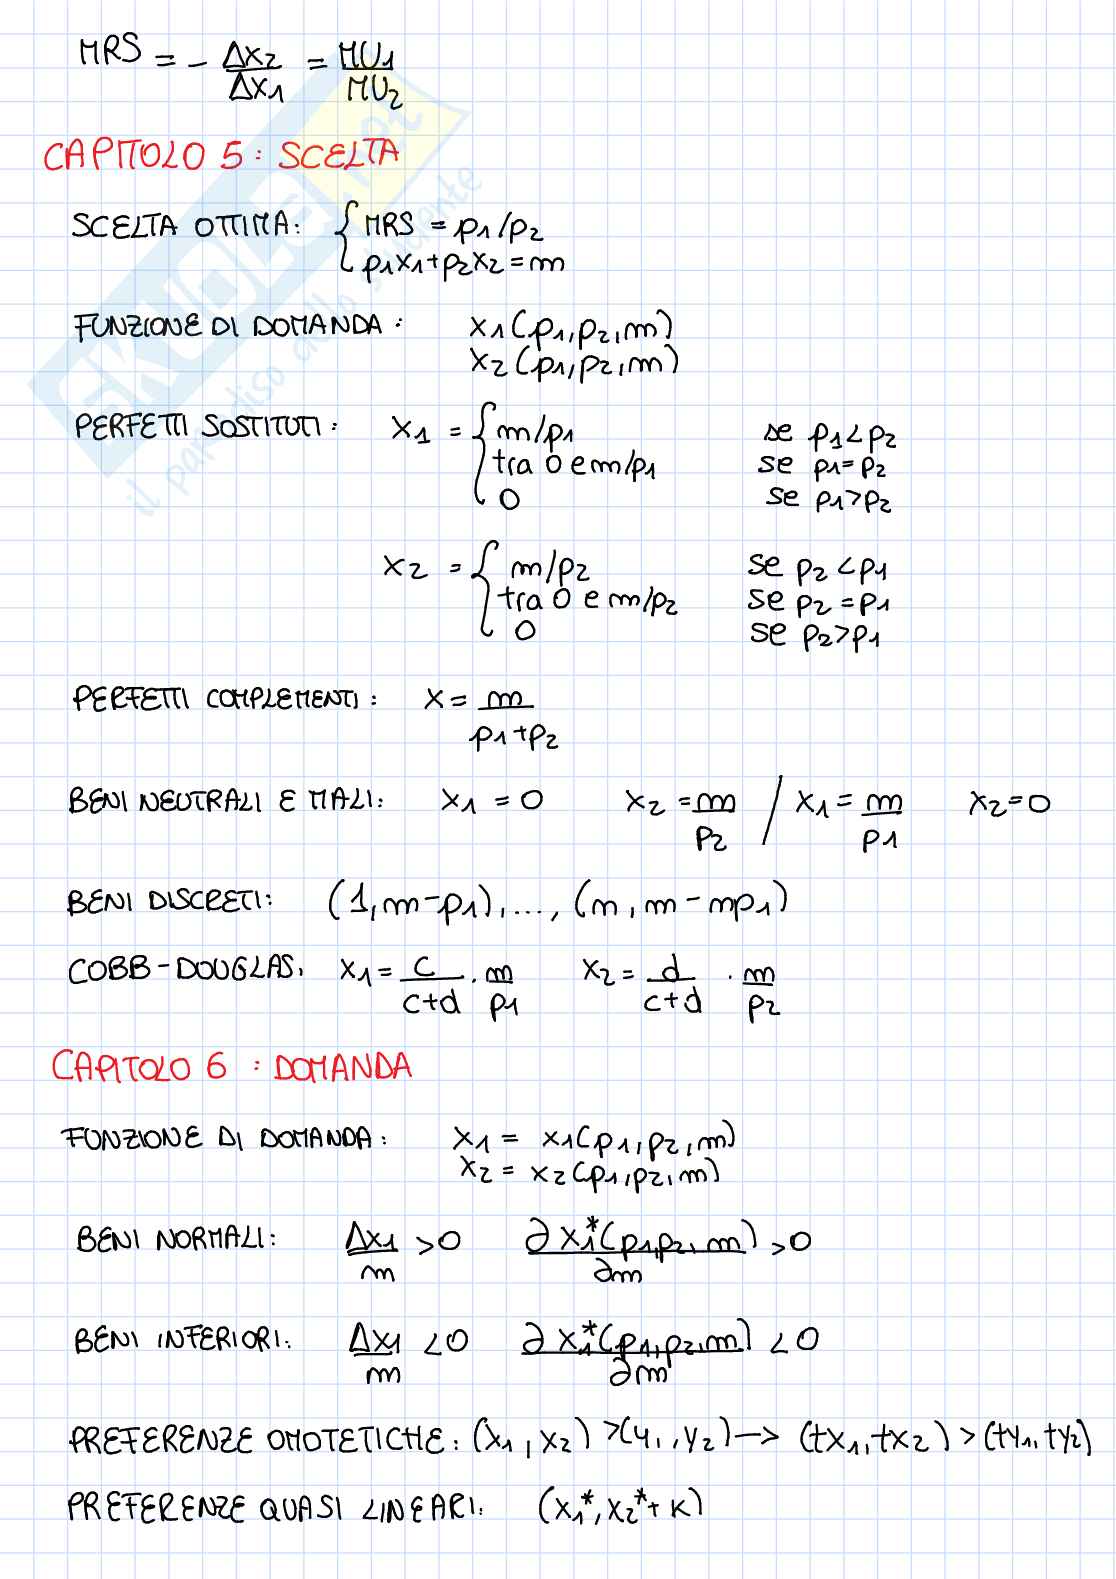 MRS = - Δx2/Δx1 = MU1/MU2
CAPITOLO 5: SCELTA
SCELTA OTTIMA: { MRS = p1/p2
p1x1+p2x2=m
FUNZIONE DI DOMANDA: x1(p1,p2,m)
x2(p1,p2,m)
PERFETTI SOSTITUTI: x1 = { m/p1 se p1<p2
tra 0 e m/p1 se p1=p2
0 se p1>p2
x2 = { m/p2 se p2<p1
tra 0 e m/p2 se p2=p1
0 se p2>p1
PERFETTI COMPLEMENTI: x = m/(p1+p2)
BENI NEUTRALI E MALI: x1 = 0 x2 = m/p2 / x1 = m/p1 x2=0
BENI DISCRETI: (1,m-p1),...,(n,m-np1)
COBB-DOUGLAS: x1 = c/(c+d) · m/p1 x2 = d/(c+d) · m/p2
CAPITOLO 6 : DOMANDA
FUNZIONE DI DOMANDA: x1 = x1(p1,p2,m)
x2 = x2(p1,p2,m)
BENI NORMALI: Δx1/m >0 ∂x1*(p1,p2,m)/∂m >0
BENI INFERIORI: Δx1/m <0 ∂x1*(p1,p2,m)/∂m <0
PREFERENZE OMOTETICHE: (x1,x2) >(y1,y2)→ (tx1,tx2) >(ty1,ty2)
PREFERENZE QUASI LINEARI: (x1*,x2*+k)
SKUOLA.net
il paradiso dello studente